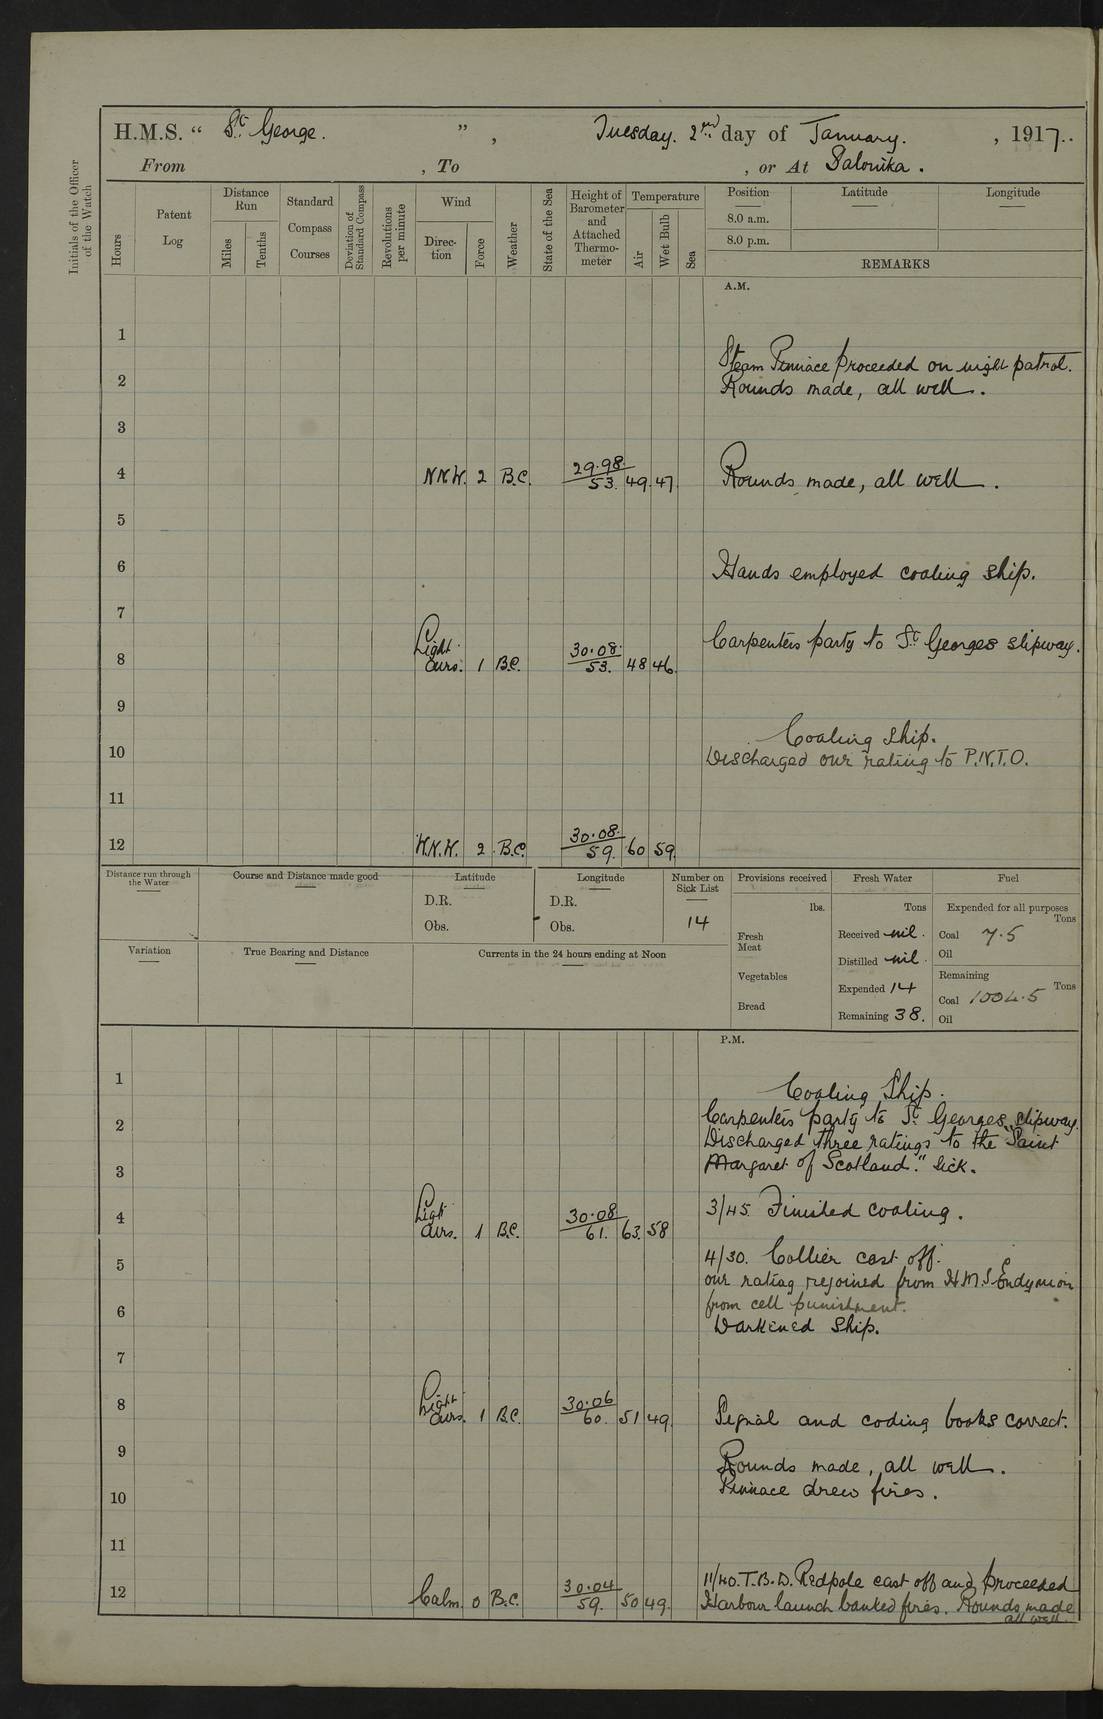 H.M.S. “ St. George. ”, Tuesday. 2nd day of January. , 1917..
From , To , or At Salonika.
Initials of the Officer of the Watch
Hours
Patent Log
Distance Run
Miles
Tenths
Standard Compass Courses
Deviation of Standard Compass
Revolutions per minute
Wind
Direction
Force
Weather
State of the Sea
Height of Barometer and Attached Thermometer
Temperature
Air
Wet Bulb
Sea
Position Latitude Longitude
8.0 a.m.
8.0 p.m.
REMARKS
A.M.
1
Steam Pinnace proceeded on night patrol.
2 Rounds made, all well.
3
4 N.N.W. 2 B.C. 29.98. 53. 49. 47. Rounds made, all well.
5
6 Hands employed coaling ship.
7
Carpenters party to St. Georges slipway.
8 Light airs. 1 B.C. 30.08. 53. 48 46.
9
Coaling ship.
10 Discharged one rating to P.N.T.O.
11
12 W.N.W. 2 B.C. 30.08. 59. 60 59.
Distance run through the Water
Course and Distance made good
Latitude
D.R.
Obs.
Longitude
D.R.
Obs.
Number on Sick List
14
Provisions received
lbs.
Fresh Meat
Vegetables
Bread
Fresh Water
Tons
Received nil.
Distilled nil.
Expended 14
Remaining 38.
Fuel
Expended for all purposes
Tons
Coal 7.5
Oil
Remaining
Tons
Coal 1004.5
Oil
Variation
True Bearing and Distance
Currents in the 24 hours ending at Noon
P.M.
1 Coaling Ship.
2 Carpenters party to St. Georges slipway.
Discharged three ratings to the "Saint
3 Margaret of Scotland." Sick.
4 Light airs. 1 B.C. 30.08 61. 63. 58 3/45. Finished coaling.
5 4/30. Collier cast off.
one rating rejoined from H.M.S. Endymion
6 from cell punishment.
Darkened ship.
7
8 Light airs. 1 B.C. 30.06 60. 51 49. Signal and coding books correct.
9 Rounds made, all well.
10 Pinnace drew fires.
11
11/40. T.B.D. Redpole cast off and proceeded
12 Calm. 0 B.C. 30.04 59. 50 49. Harbour launch banked fires. Rounds made
all well.